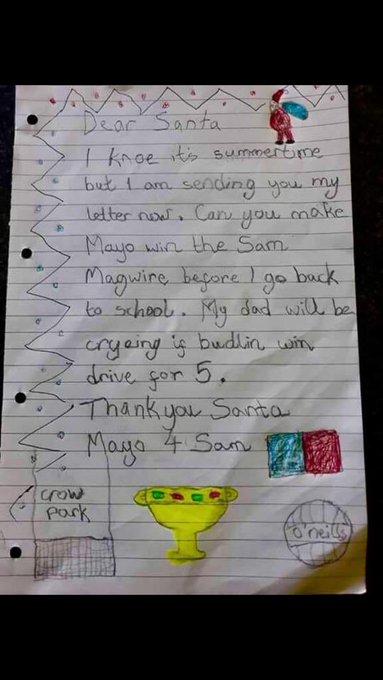 Dear Santa
I knoe it's summertime
but I am sending you my
letter now. Can you make
Mayo win the Sam
Magwire before I go back
to school. My dad will be
cryaing if budlin win
drive for 5.
Thankyou Santa
Mayo 4 Sam
crow
park
o'neills